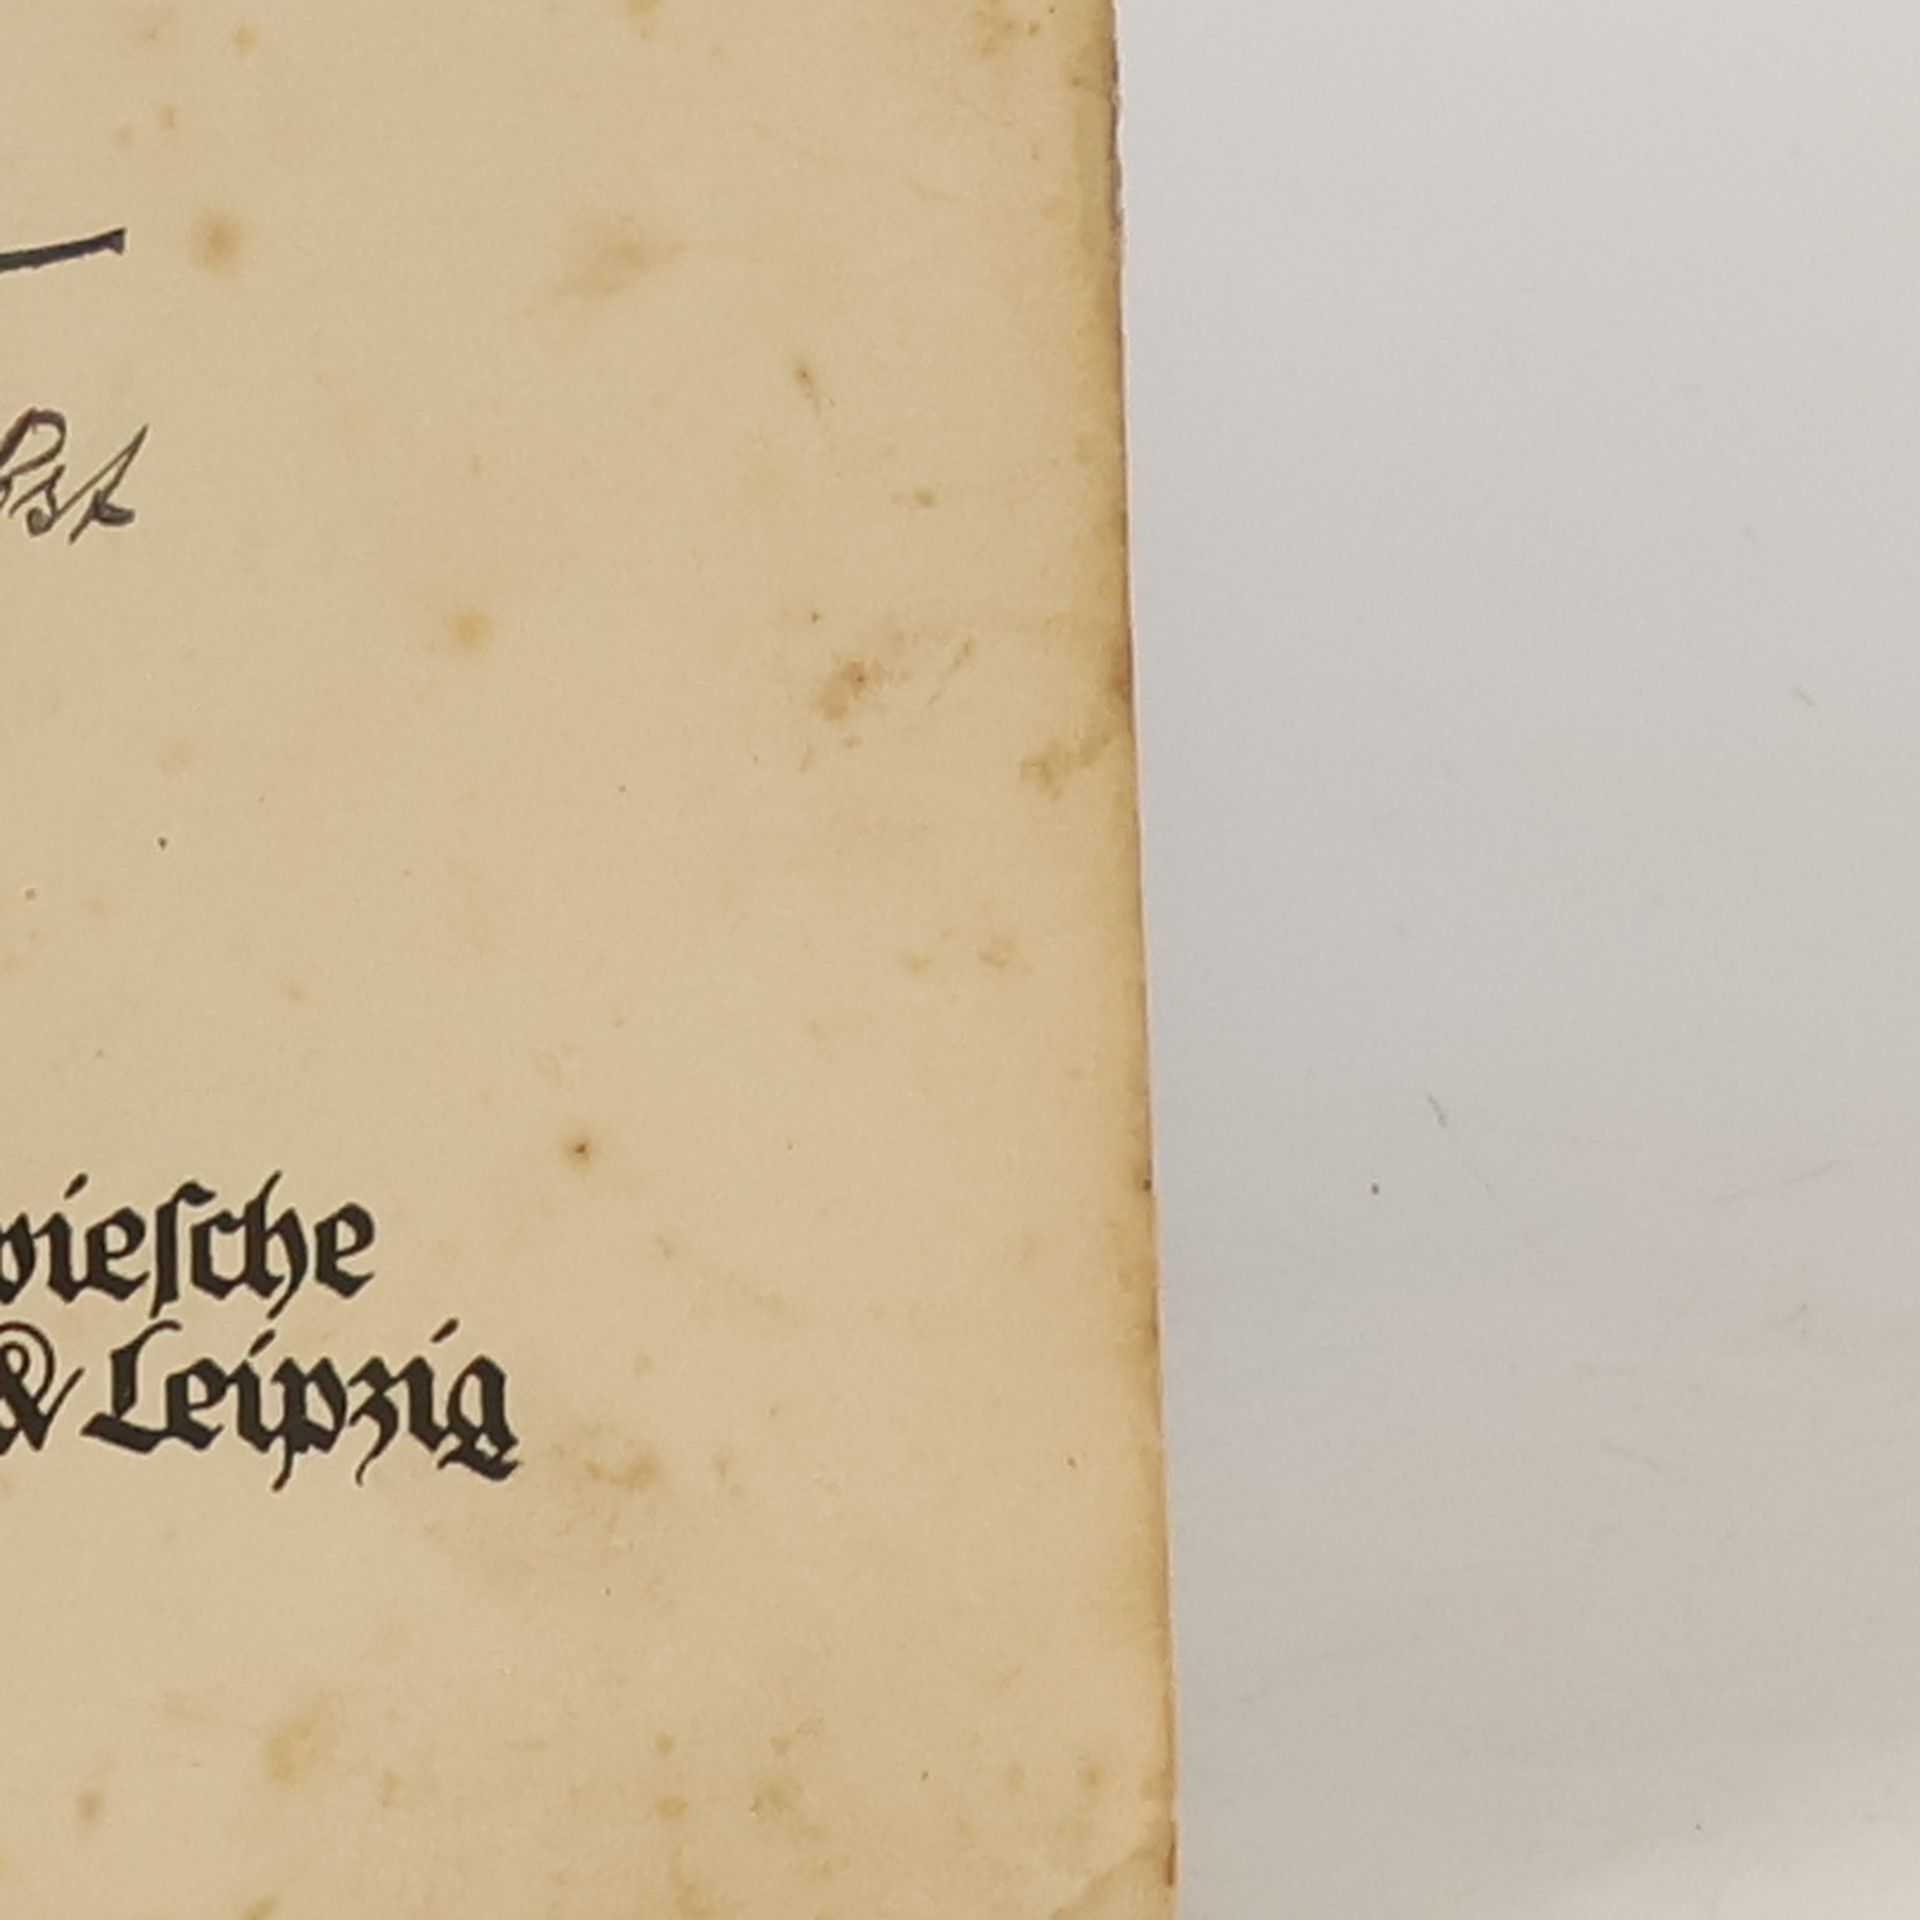 bst
wiesche
& Leipzig